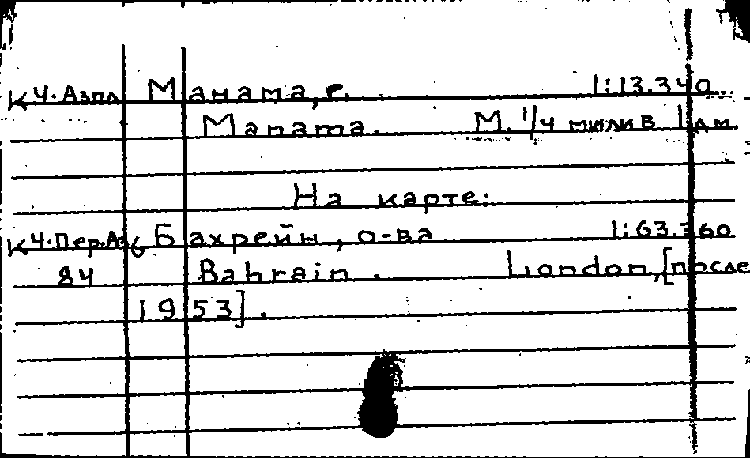 К4.Азпл Манама, г. 1:13.340
Manama. М. 1/4 мили в 1 дм
На карте:
К4.Пер.Аз6 Бахрейн, о-ва 1:63.360
84 Bahrain. London, [после
1953].